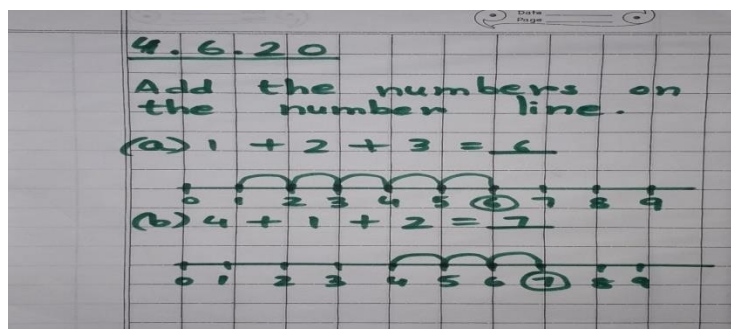 Date
Page
4.6.20
Add the numbers on
the number line.
(a) 1 + 2 + 3 = 6
0 1 2 3 4 5 6 7 8 9
(b) 4 + 1 + 2 = 7
0 1 2 3 4 5 6 7 8 9